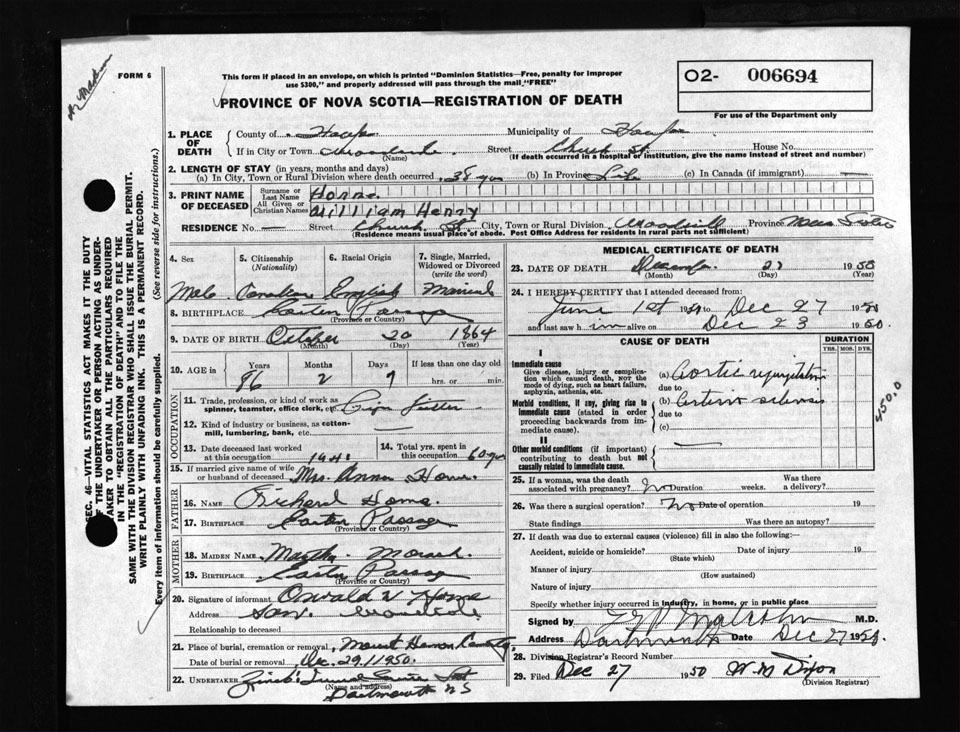 Dr Malcolm
FORM 6
This form if placed in an envelope, on which is printed "Dominion Statistics—Free, penalty for improper
use $300," and properly addressed will pass through the mail "FREE"
O2- 006694
PROVINCE OF NOVA SCOTIA—REGISTRATION OF DEATH
For use of the Department only
1. PLACE OF DEATH County of Halifax Municipality of Halifax
If in City or Town Woodside (Name) Street Church St. House No.
(If death occurred in a hospital or institution, give the name instead of street and number)
2. LENGTH OF STAY (in years, months and days)
(a) In City, Town or Rural Division where death occurred 38 yrs (b) In Province Life (c) In Canada (if immigrant) —
3. PRINT NAME OF DECEASED Surname or Last Name Horne
All Given or Christian Names William Henry
RESIDENCE No. — Street Church St City, Town or Rural Division Province Nova Scotia
(Residence means usual place of abode. Post Office Address for residents in rural parts not sufficient)
4. Sex 5. Citizenship (Nationality) 6. Racial Origin 7. Single, Married, Widowed or Divorced (write the word)
Male Canadian English Married
8. BIRTHPLACE Eastern Passage
(Province or Country)
9. DATE OF BIRTH October 20 1864
(Month) (Day) (Year)
10. AGE in Years Months Days If less than one day old
86 2 7 hrs. or min.
OCCUPATION
11. Trade, profession, or kind of work as spinner, teamster, office clerk, etc. Pipe Fitter
12. Kind of industry or business, as cotton-mill, lumbering, bank, etc. —
13. Date deceased last worked at this occupation 14. Total yrs. spent in this occupation 60 yrs
15. If married give name of wife or husband of deceased Mrs. Annie Horne
FATHER
16. NAME Richard Horne
17. BIRTHPLACE Eastern Passage
(Province or Country)
MOTHER
18. MAIDEN NAME Martha
19. BIRTHPLACE Eastern Passage
(Province or Country)
20. Signature of informant Oswald W Horne
Address Woodside
Relationship to deceased Son.
21. Place of burial, cremation or removal Mount Hermon Cemetery
Date of burial or removal Dec. 29, 1950.
22. UNDERTAKER Funeral Service
(Name and address)
Dartmouth NS
MEDICAL CERTIFICATE OF DEATH
23. DATE OF DEATH December 27 1950
(Month) (Day) (Year)
24. I HEREBY CERTIFY that I attended deceased from
June 1st 1950 to Dec 27 1950
and last saw him alive on Dec 23 1950.
CAUSE OF DEATH
DURATION
YRS. MOS. DYS.
I
Immediate cause
Give disease, injury or complication which caused death, not the mode of dying, such as heart failure, asphyxia, asthenia, etc.
(a) Aortic regurgitation
due to
Morbid conditions, if any, giving rise to immediate cause (stated in order proceeding backwards from immediate cause).
(b) Arterio sclerosis
due to
(c)
II
Other morbid conditions (if important) contributing to death but not causally related to immediate cause. —
450.0
25. If a woman, was the death associated with pregnancy? No Duration weeks. Was there a delivery?
26. Was there a surgical operation? No Date of operation 19
State findings Was there an autopsy?
27. If death was due to external causes (violence) fill in also the following:—
Accident, suicide or homicide? Date of injury 19
(State which)
Manner of injury
(How sustained)
Nature of injury
Specify whether injury occurred in industry, in home, or in public place
Signed by Malcolm M.D.
Address Dartmouth Date Dec 27 1950.
28. Division Registrar's Record Number
29. Filed Dec 27 1950 W. M. Dixon
(Division Registrar)
SEC. 46—VITAL STATISTICS ACT MAKES IT THE DUTY
OF THE UNDERTAKER OR PERSON ACTING AS UNDERTAKER TO OBTAIN ALL THE PARTICULARS REQUIRED
IN THE "REGISTRATION OF DEATH" AND TO FILE THE
SAME WITH THE DIVISION REGISTRAR WHO SHALL ISSUE THE BURIAL PERMIT.
WRITE PLAINLY WITH UNFADING INK. THIS IS A PERMANENT RECORD.
Every item of information should be carefully supplied. (See reverse side for instructions.)